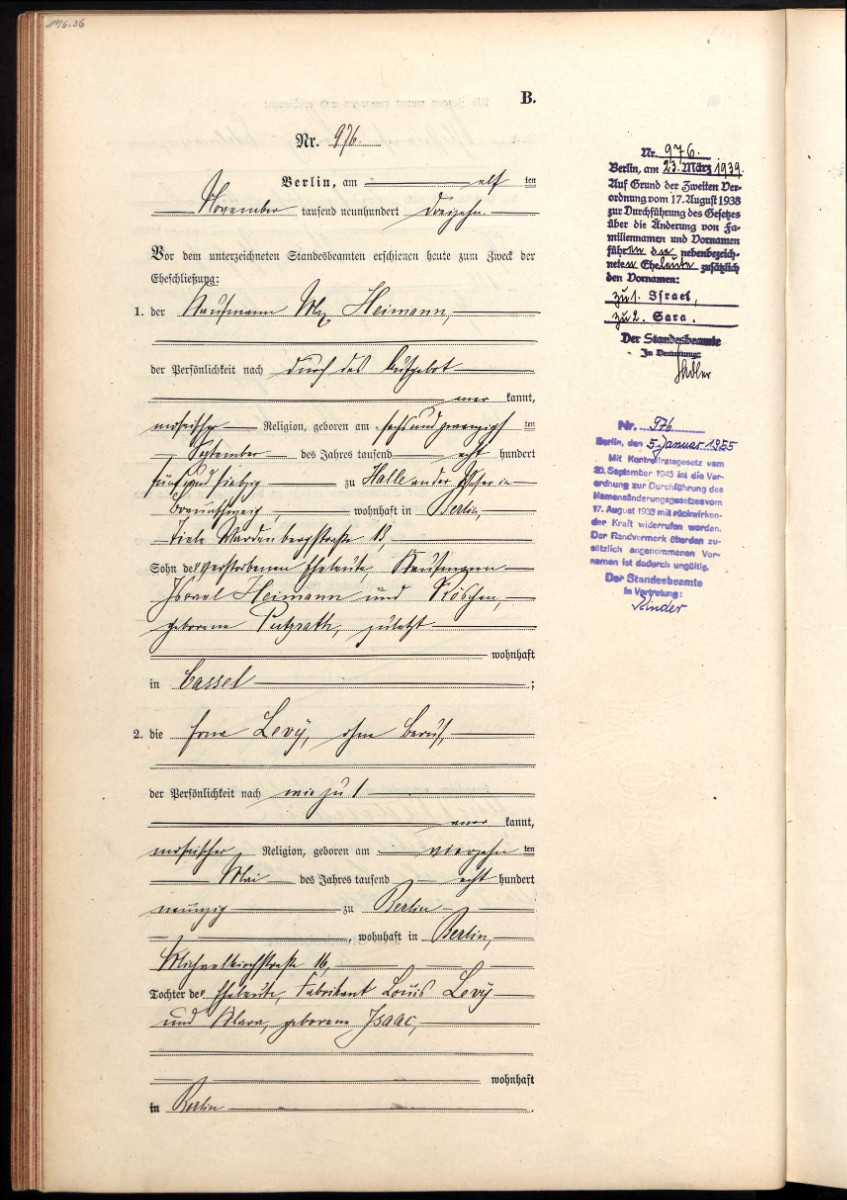 B.
Nr. 976.
Berlin, am elf ten
November tausend neunhundert dreizehn.
Vor dem unterzeichneten Standesbeamten erschienen heute zum Zweck der
Eheschließung:
1. der Kaufmann Max Heimann,
der Persönlichkeit nach durch das Aufgebot
aner kannt,
mosaischer Religion, geboren am sechsundzwanzigsten
September des Jahres tausend acht hundert
fünfundsiebzig zu Halle an der Weser in
Braunschweig, wohnhaft in Berlin,
Tiele Wardenbergstraße 13,
Sohn der verstorbenen Eheleute, Kaufmann
Israel Heimann und Röschen,
geborene Putzrath, zuletzt
wohnhaft
in Cassel ;
2. die Erna Levy, ohne Beruf,
der Persönlichkeit nach wie zu 1
aner kannt,
mosaischer Religion, geboren am vierzehn ten
Mai des Jahres tausend acht hundert
neunzig zu Berlin
, wohnhaft in Berlin,
Michaelkirchstraße 16,
Tochter der Eheleute, Fabrikant Louis Levy
und Klara, geborene Isaac,
wohnhaft
in Berlin .
Nr. 976.
Berlin, am 23. März 1939.
Auf Grund der Zweiten Ver-
ordnung vom 17. August 1938
zur Durchführung des Gesetzes
über die Änderung von Fa-
miliennamen und Vornamen
führen die nebenbezeich-
neten Eheleute zusätzlich
den Vornamen:
zu 1. Israel,
zu 2. Sara.
Der Standesbeamte
In Vertretung:
Nr. 976
Berlin, den 5. Januar 1955
Mit Kontrollratsgesetz vom
20. September 1945 ist die Ver-
ordnung zur Durchführung des
Namensänderungsgesetzes vom
17. August 1938 mit rückwirken-
der Kraft widerrufen worden.
Der Randvermerk über den zu-
sätzlich angenommenen Vor-
namen ist dadurch ungültig.
Der Standesbeamte
In Vertretung: